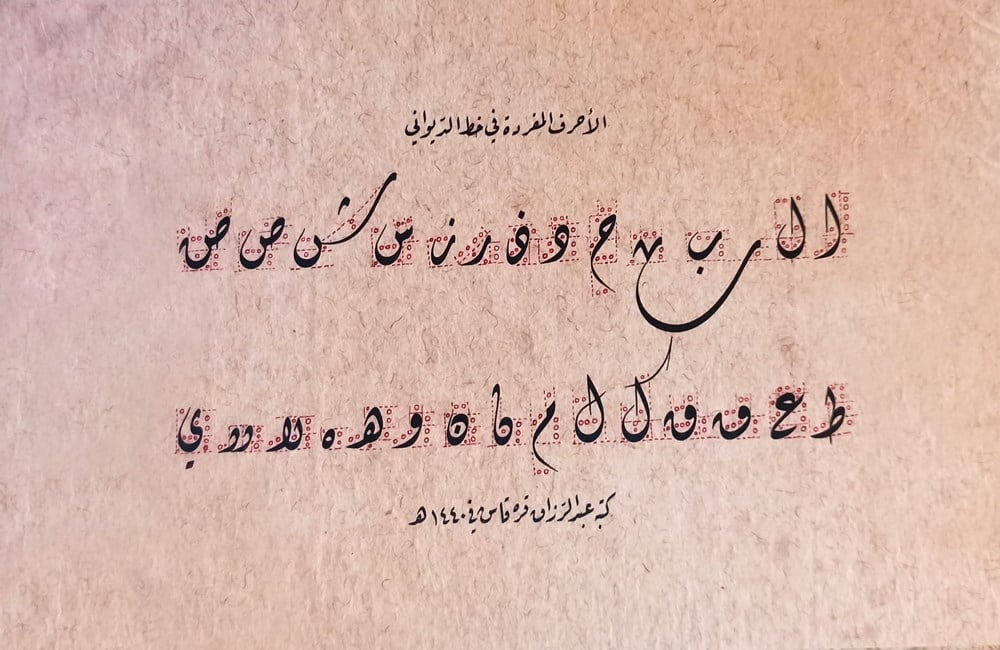 الأحرف المفردة في خط الديواني
ا ل ب ب س ح د ذ ر ز س ش ص ص
ط ع ف ق ك ل م ن ن و ه ه لا د د ي
كتبه عبدالرزاق قره قاش في ١٤٤٠ هـ